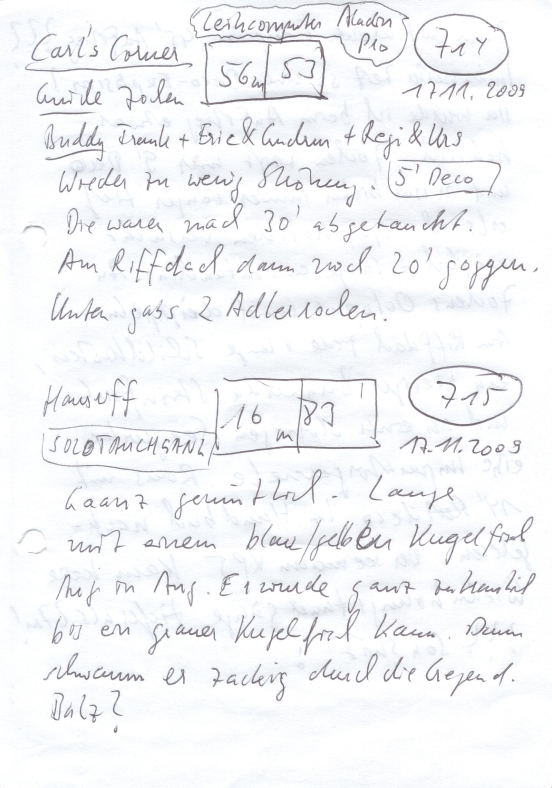 Leihcomputer Aladin
Pro
714
Carl's Corner
56m 53
17.11.2009
Guide Jochen
Buddy Frank + Eric & Gudrun + Regi & Urs
Wieder zu wenig Strömung. 5' Deco
Die waren nach 30' abgetaucht.
Am Riffdach dann noch 20' goggen.
Unten gabs 2 Adlerrochen.
Hausriff
16 m 83'
715
SOLOTAUCHGANG
17.11.2009
Gaanz gemütlich. Lange
mit einem blau/gelben Kugelfisch
Aug in Aug. Er wurde ganz zutraulich
bis ein grauer Kugelfisch kam. Dann
schwamm er zackig durch die Gegend.
Balz?